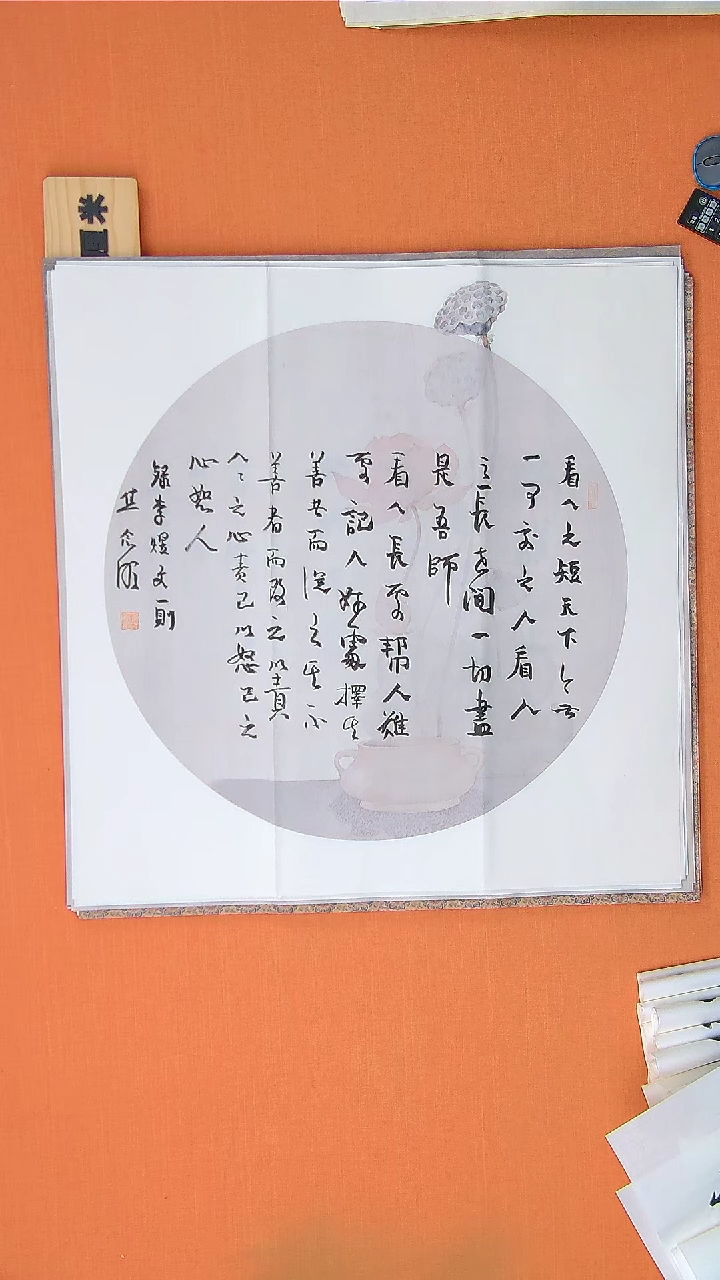 看人之短天下無
一可交之人看人
之長世間一切盡
是吾師
看人長處幫人難
處記人好處擇其
善者而從之其不
善者而改之以責
人之心責己以恕己之
心恕人
錄李煜文一則
米